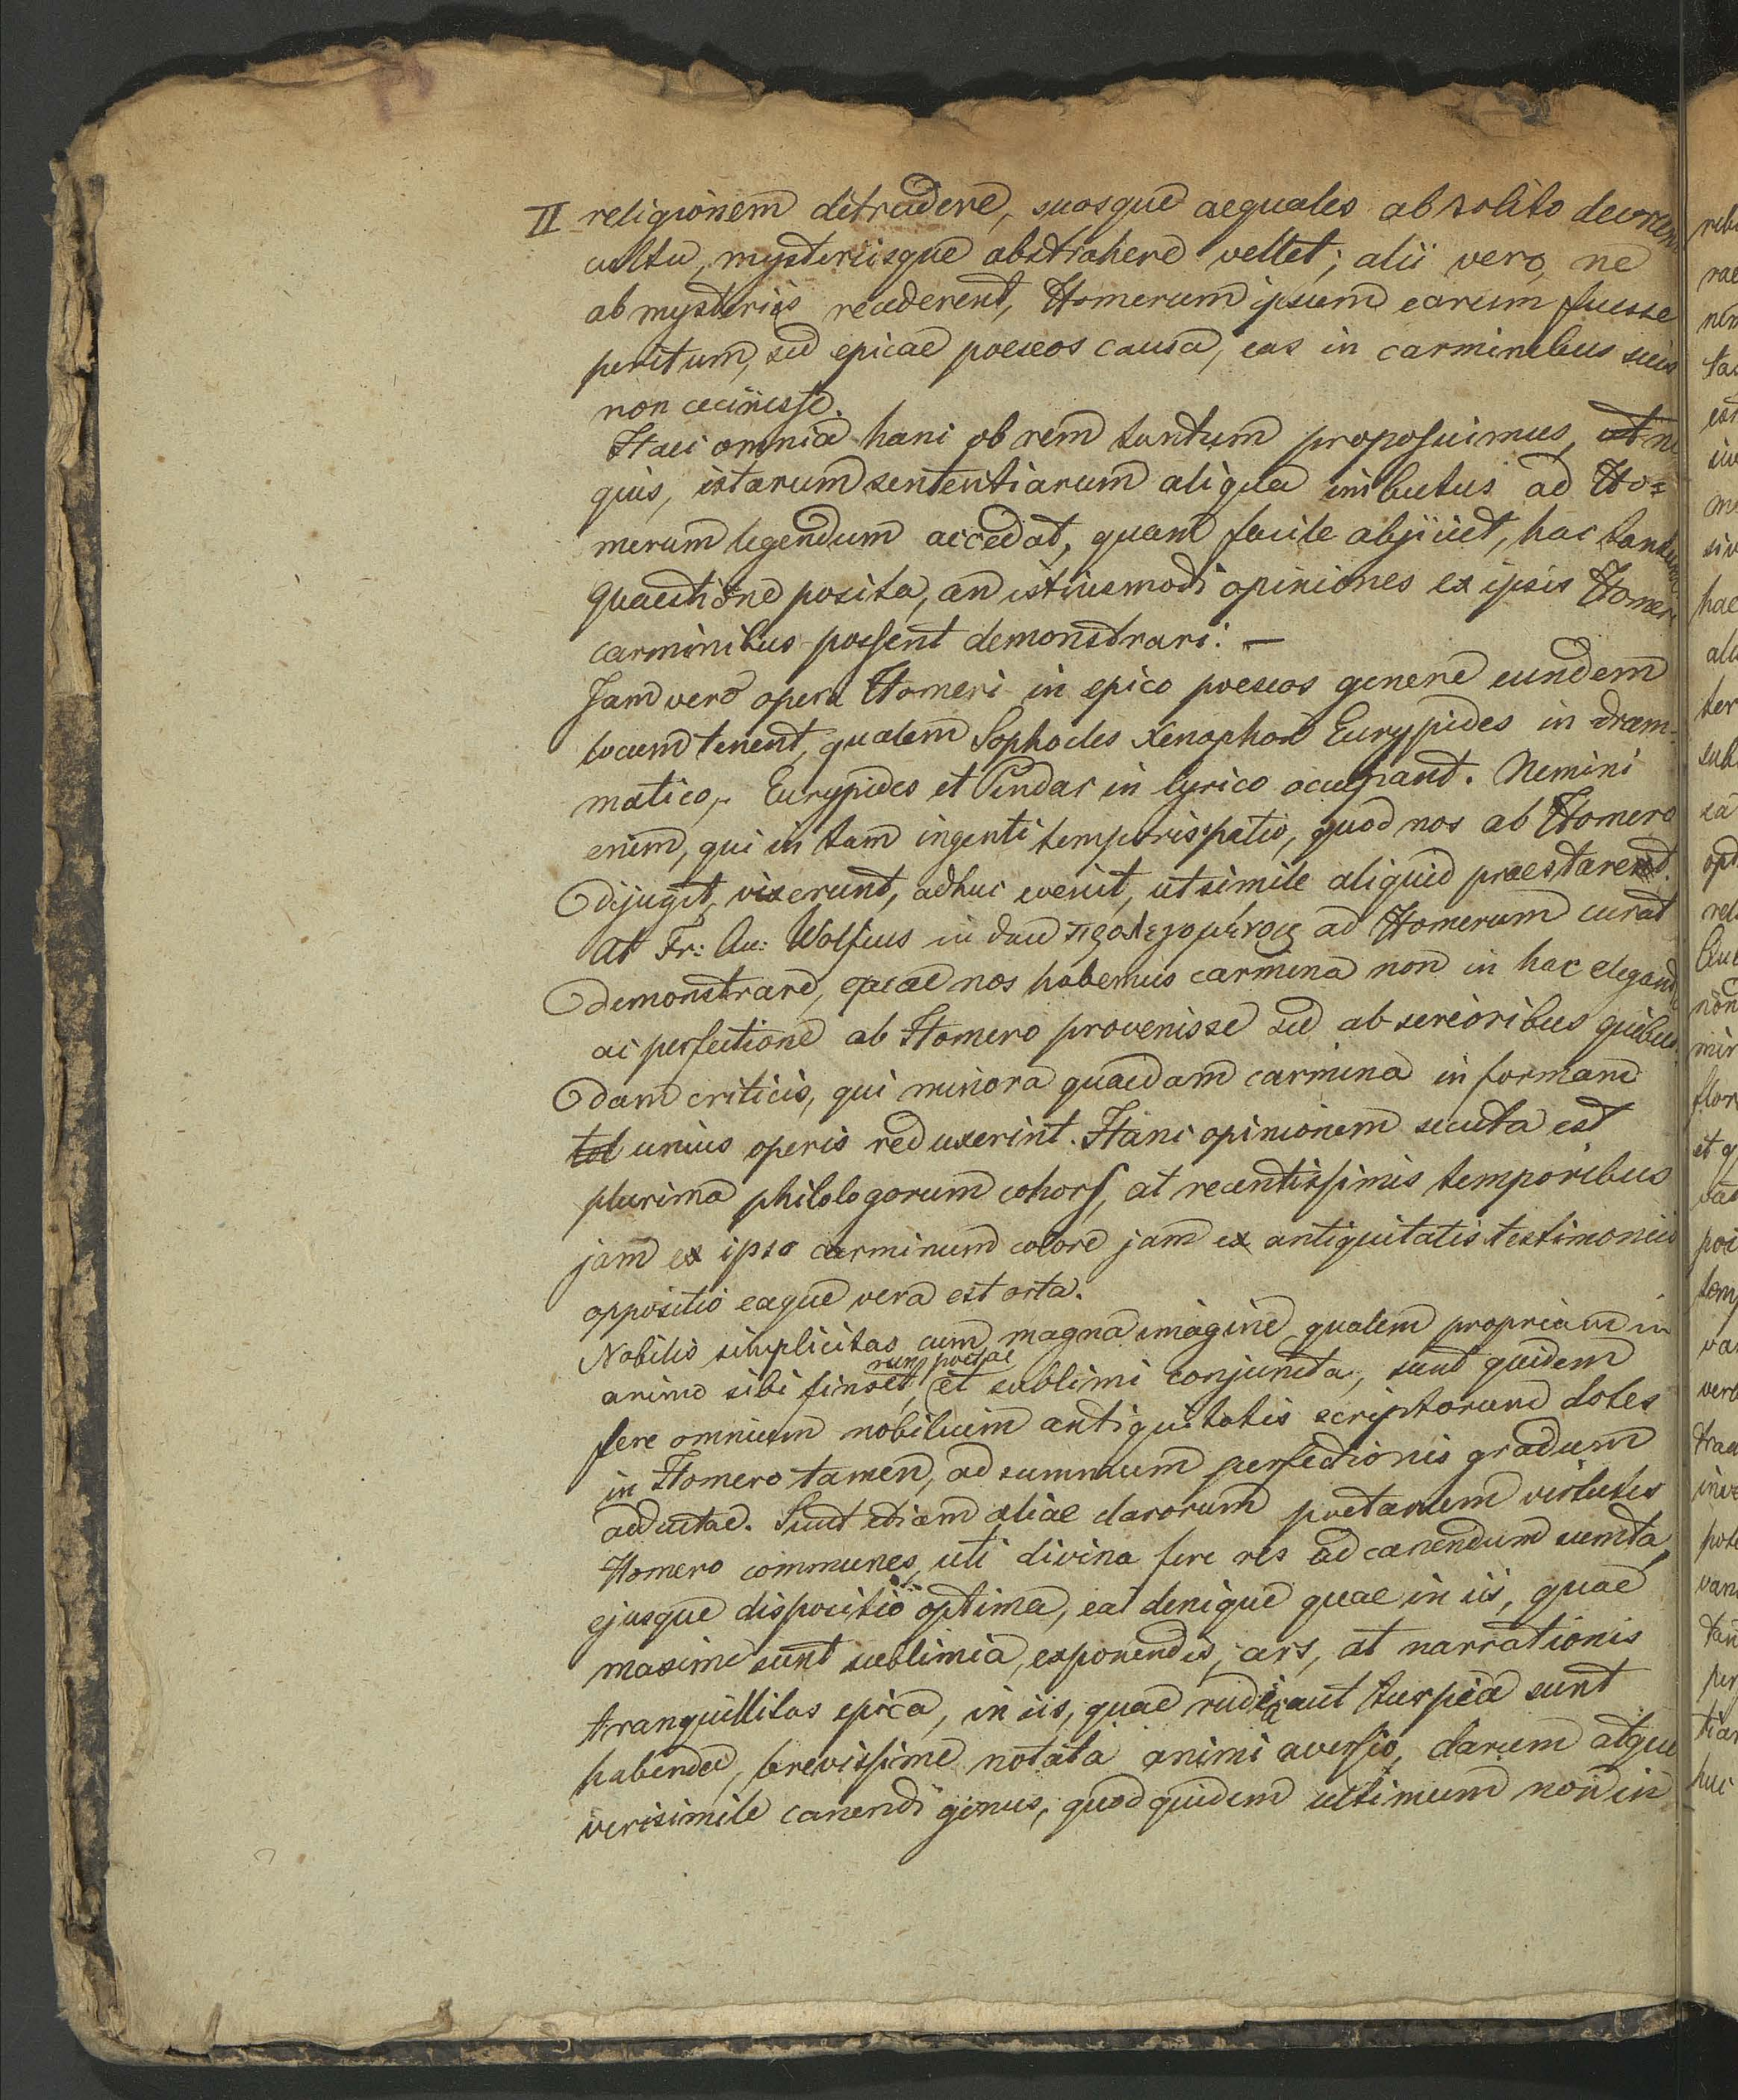 II religionem detrudere, suosque aequales ab solito deorum
cultu, mysteriisque abstrahere vellet; alii vero, ne
ab mysteriis recederent, Homerum ipsum earum fuisse
peritum, sed epicae poeseos causa, eas in carminibus suis
non cecinisse.
Haec omnia hanc ob rem tantum proposuimus, ut ne
quis, istarum sententiarum aliqua imbutus ad Ho=
merum legendum accedat, quam facile abjiciet, hac tantum
quaestione posita, an istiusmodi opiniones ex ipsis Homeri
carminibus possent demonstrari. —
Jam vero opera Homeri in epico poeseos genere eundem
locum tenent, qualem Sophocles Xenophon Eurypides in dram-
matico, Eurypides et Pindar in lyrico occupant. Nemini
enim, qui in tam ingenti temporis spatio, quod nos ab Homero
dijugit, vixerunt, adhuc evenit, ut simile aliquid praestarent.
At Fr: Au: Wolfius in προλεγομένοις ad Homerum curat
demonstrare, quae nos habemus carmina non in hac elegantia
ac perfectione ab Homero provenisse sed ab serioribus quibus
dam criticis, qui minora quaedam carmina in formam
tol unius operis reduxerint. Hanc opinionem secuta est
plurima philologorum cohors, at recentissimis temporibus
jam ex ipso carminum colore jam ex antiquitatis testimoniis
oppositio eaque vera est orta.
Nobilis simplicitas cum magna imagine qualem propriam in
animo sibi finxet, et sublimi conjuncta, sunt quidem
poetae
fere omnium nobilium antiquitatis scriptorum dotes
in Homero tamen, ad summum perfectionis gradum
adductae. Sunt etiam aliae clarorum poetarum virtutes
Homero communes, uti divina fere res ad canendum sumta,
ejusque dispositio optima, ea denique quae in iis, quae
maxime sunt sublimia, exponendis, ars, at narrationis
tranquillitas epica, in iis, quae rudia aut turpia sunt
habenda, brevissime notata animi aversio, clarum atque
verisimile canendi genus, quod quidem ultimum non in